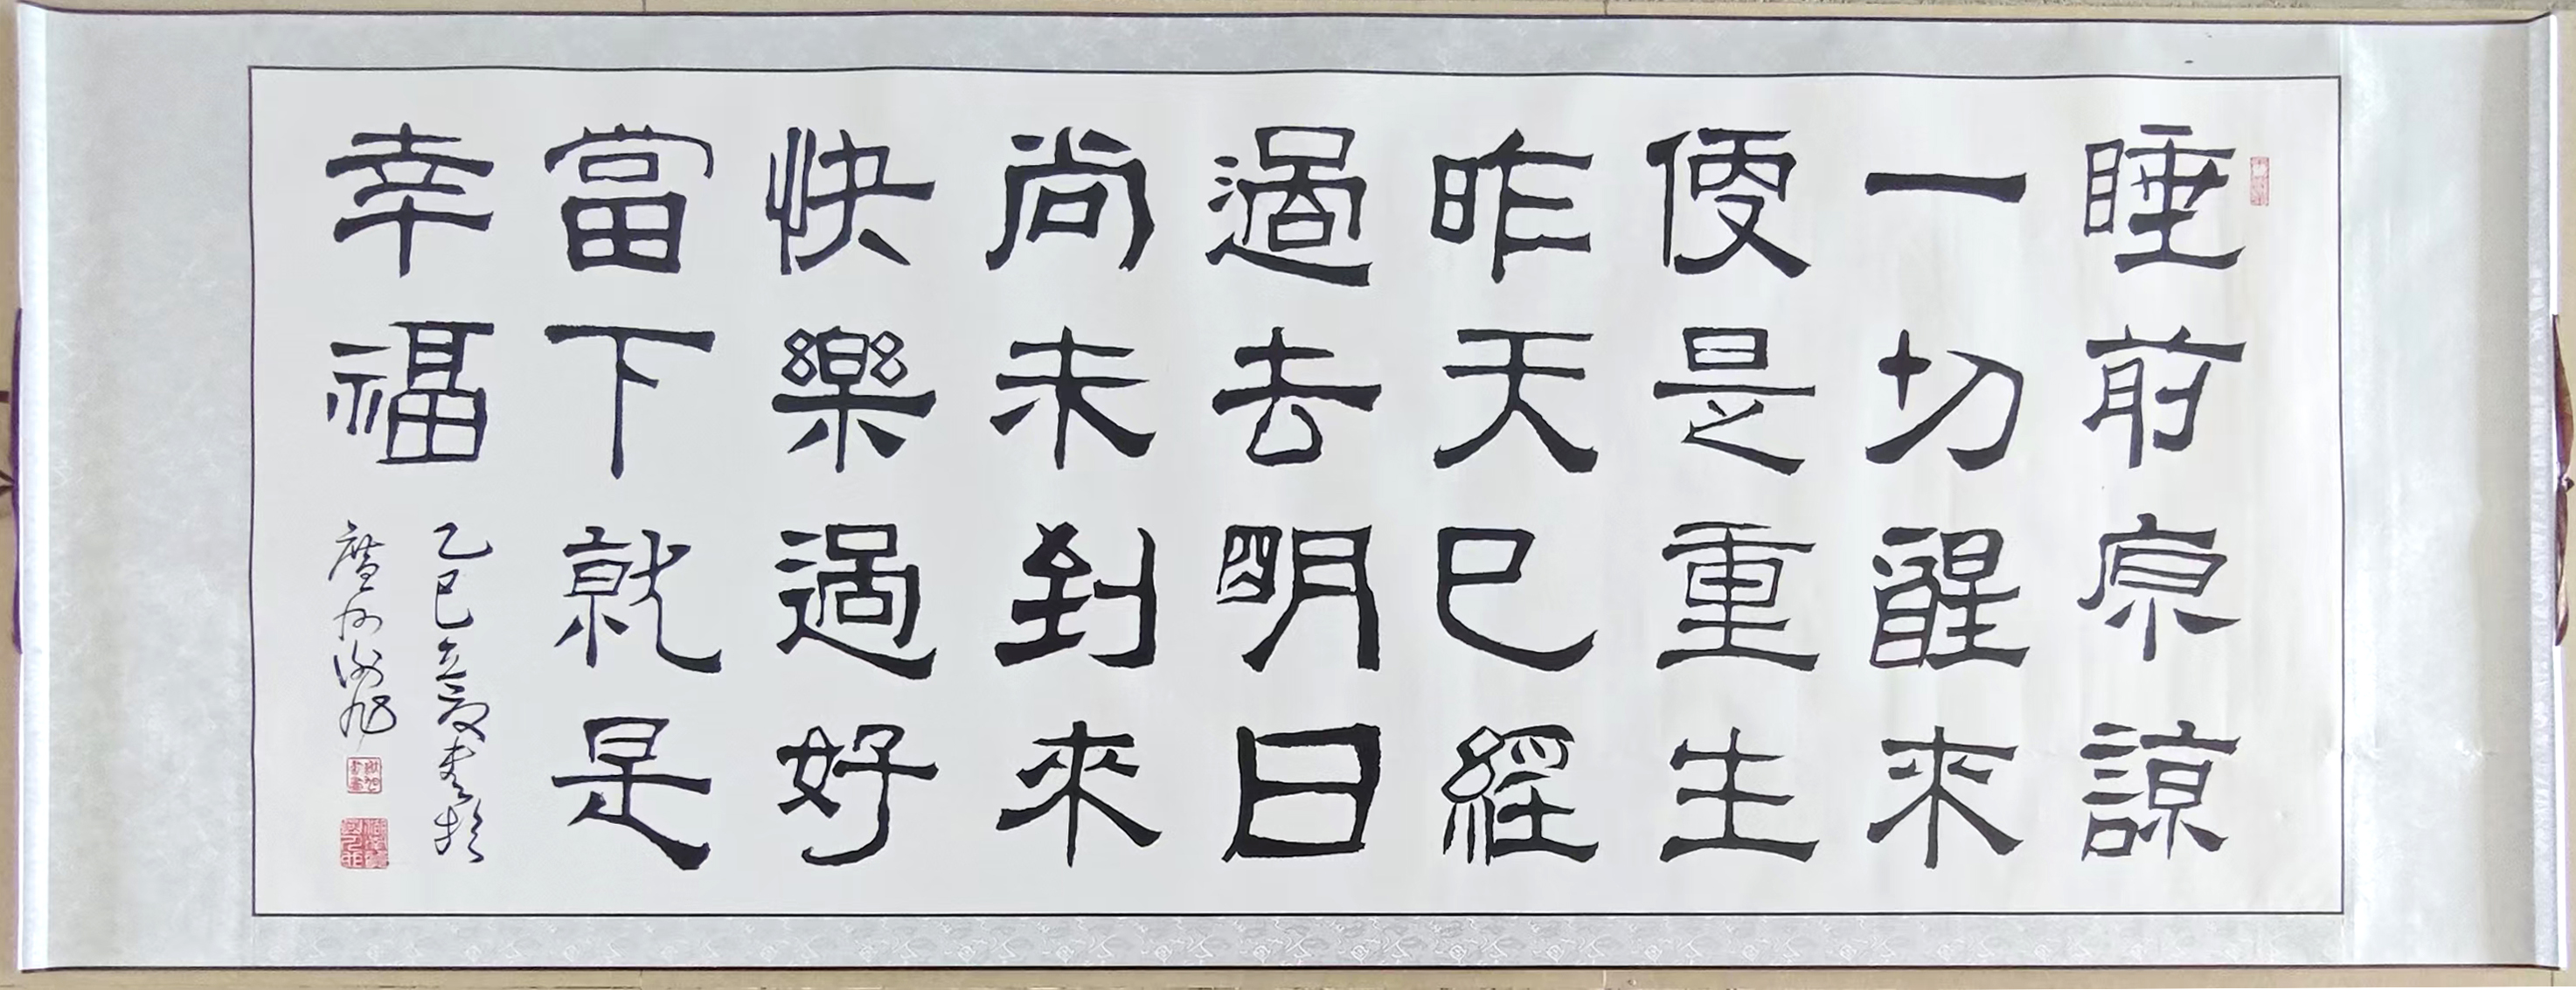 睡前原諒
一切醒來
便是重生
昨天已經
過去明日
尚未到來
快樂過好
當下就是
幸福
乙巳立夏書於
廣州謝旭